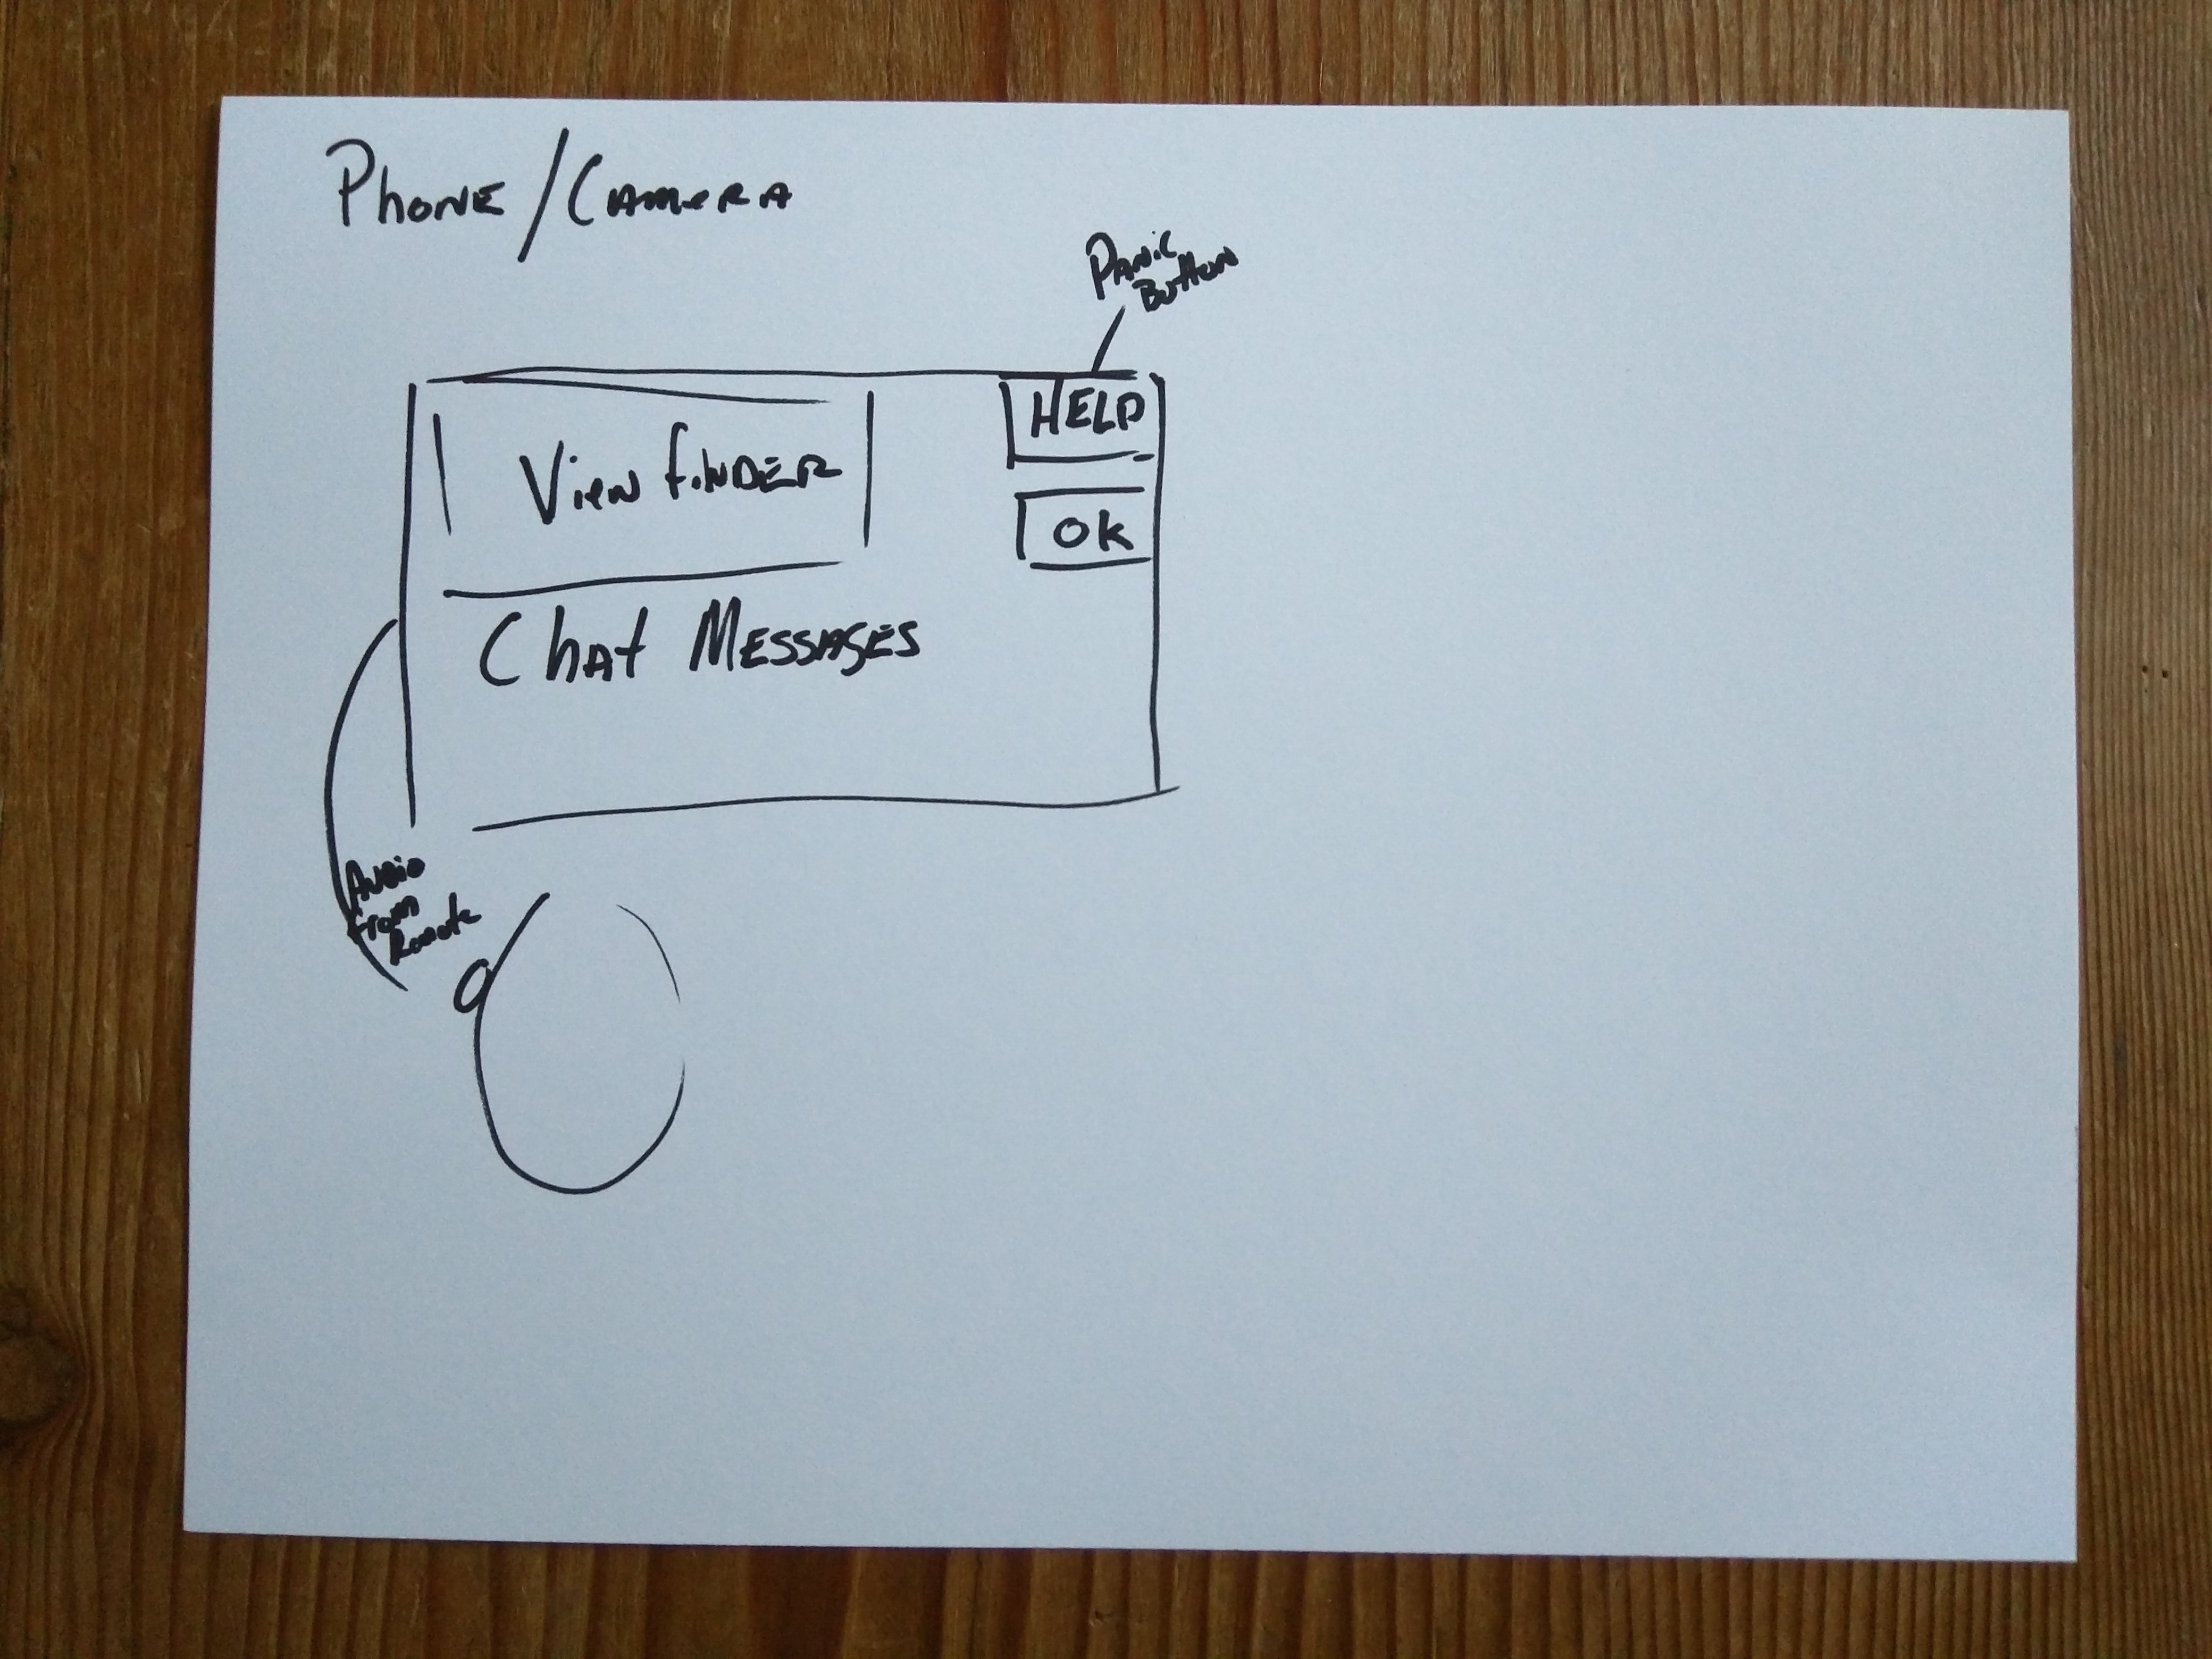 Phone/Camera
Panic
Button
HELP
View finder
OK
Chat Messages
Audio
from
Remote